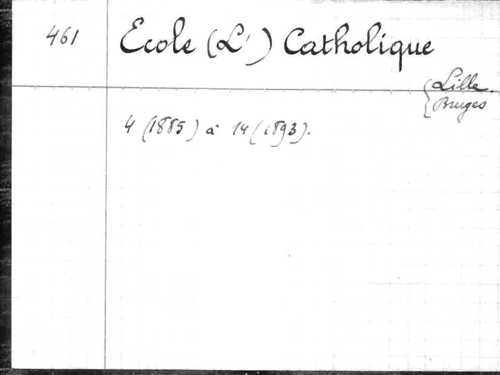 461
Ecole (L') Catholique
{ Lille.
Bruges
4 (1885) à 14 (1893).